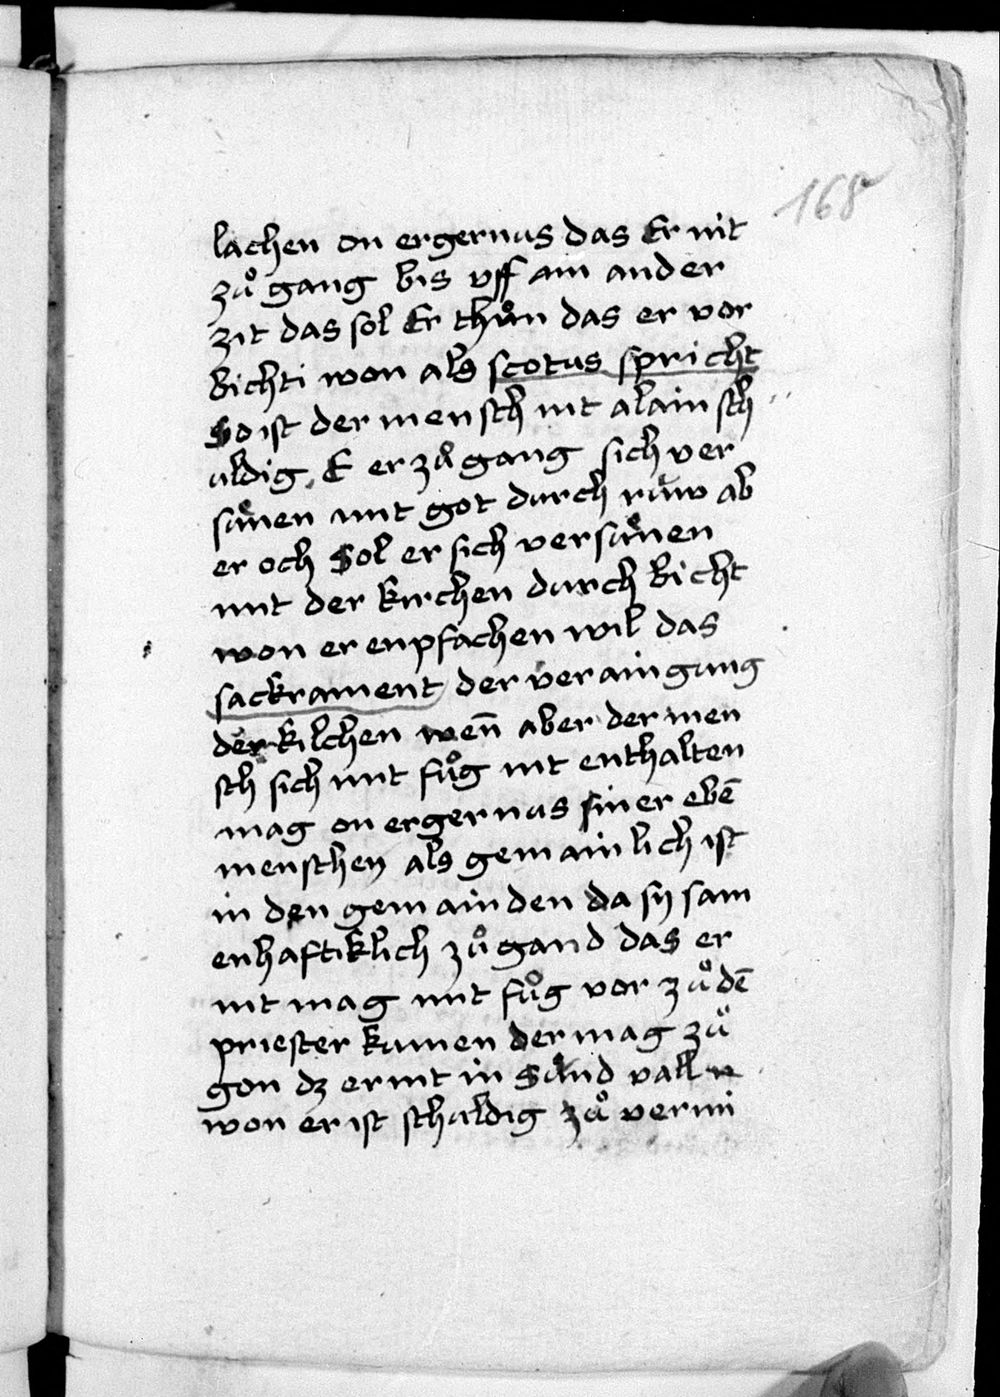 168
lachen on ergernus das Er nit
zuͦ gang bis vff ain ander
zit das sol Er thuͦn das er vor
bichti won als scotus spricht
So ist der mensch nit alain sch
uldig, E er zuͦ gang sich ver
suͤnen mit got durch ruͤw ab
er och Sol er sich versuͤnen
mit der kirchen durch bicht
won er enpfachen wil das
sackrament der verainigung
der kilchen wen̄ aber der men
sch sich mit fuͦg nit enthalten
mag on ergernus siner ebē
menschen als gemainlich ist
in den gemainden da sy sam
enhaftiklich zuͦ gand das er
nit mag mit fuͦg vor zuͦ dē
priester kumen der mag zuͦ
gon dz er nit in Suͤnd vall
won er ist schuldig zuͦ vermi